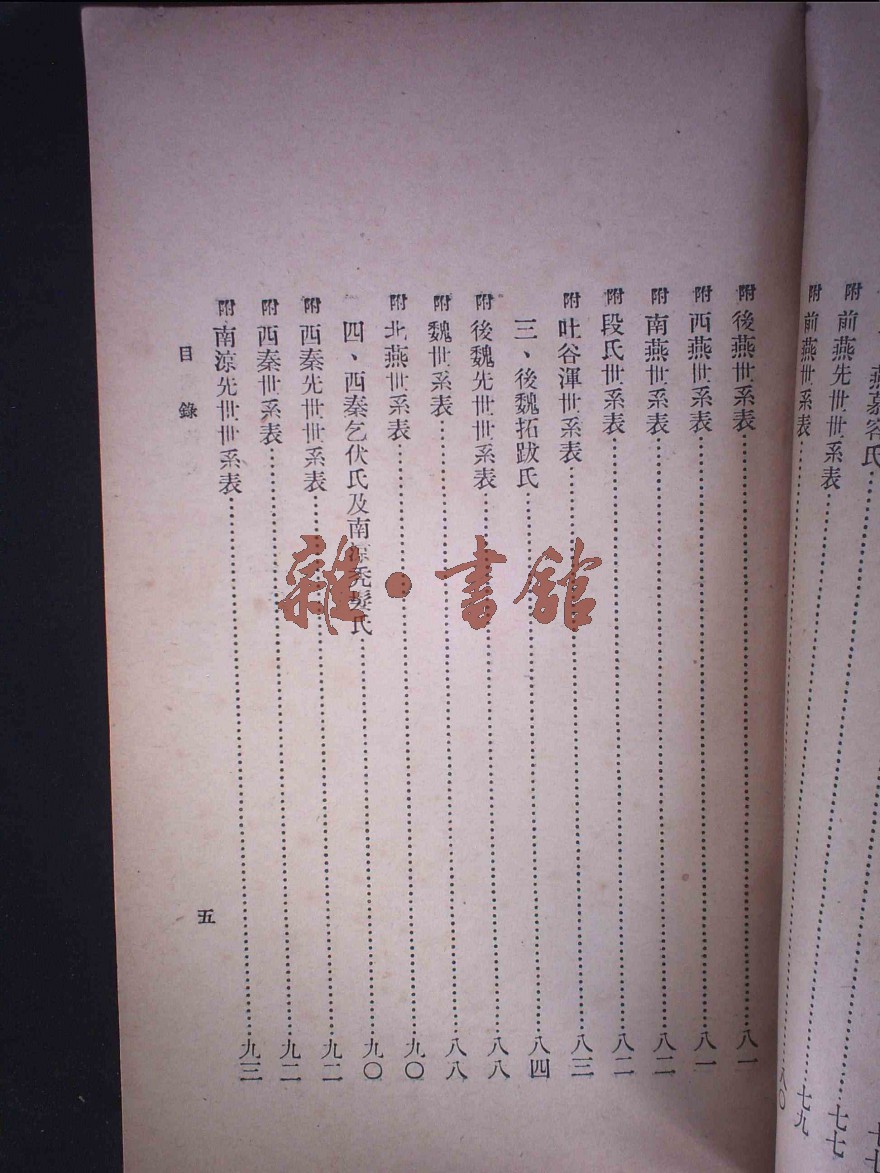 燕慕容氏
附 前燕先世世系表……七七
附 前燕世系表……七九
八〇
附 後燕世系表……八一
附 西燕世系表……八一
附 南燕世系表……八二
附 段氏世系表……八二
附 吐谷渾世系表……八三
三、後魏拓跋氏……八四
附 後魏先世世系表……八八
附 魏世系表……八八
附 北燕世系表……九〇
四、西秦乞伏氏及南涼禿髮氏……九〇
附 西秦先世世系表……九二
附 西秦世系表……九二
附 南涼先世世系表……九三
目錄 五
雜·書館